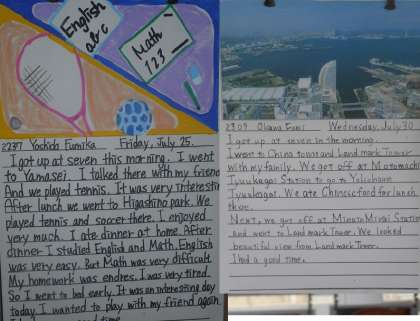 English
abc
Math
123
2237 Yochida Fumika Friday, July 25.
I got up at seven this morning. I went
to Yamasei. I talked there with my friend
And we played tennis. It was very interestin
After lunch we went to Higashino park. We
played tennis and soccer there. I enjoyed
very much. I ate dinner at home. After
dinner I studied English and Math. English
was very easy. But Math was very difficult.
My homework was endres. I was very tired.
So I went to bed early. It was an interesting day
today. I wanted to play with my friend again
good time.
2309 Okawa Wednesday, July 30
I got up at seven in the morning.
I went to China town and Land mark Tower
with my family. We got off at Motomachi
Tyuukagai Station to go to Yokohama
Tyuukagai. We ate Chinese food for lunch
there.
Next, we got off at Minato Mirai Station
and went to Land mark Tower. We looked
beautiful view from Land mark Tower.
I had a good time.